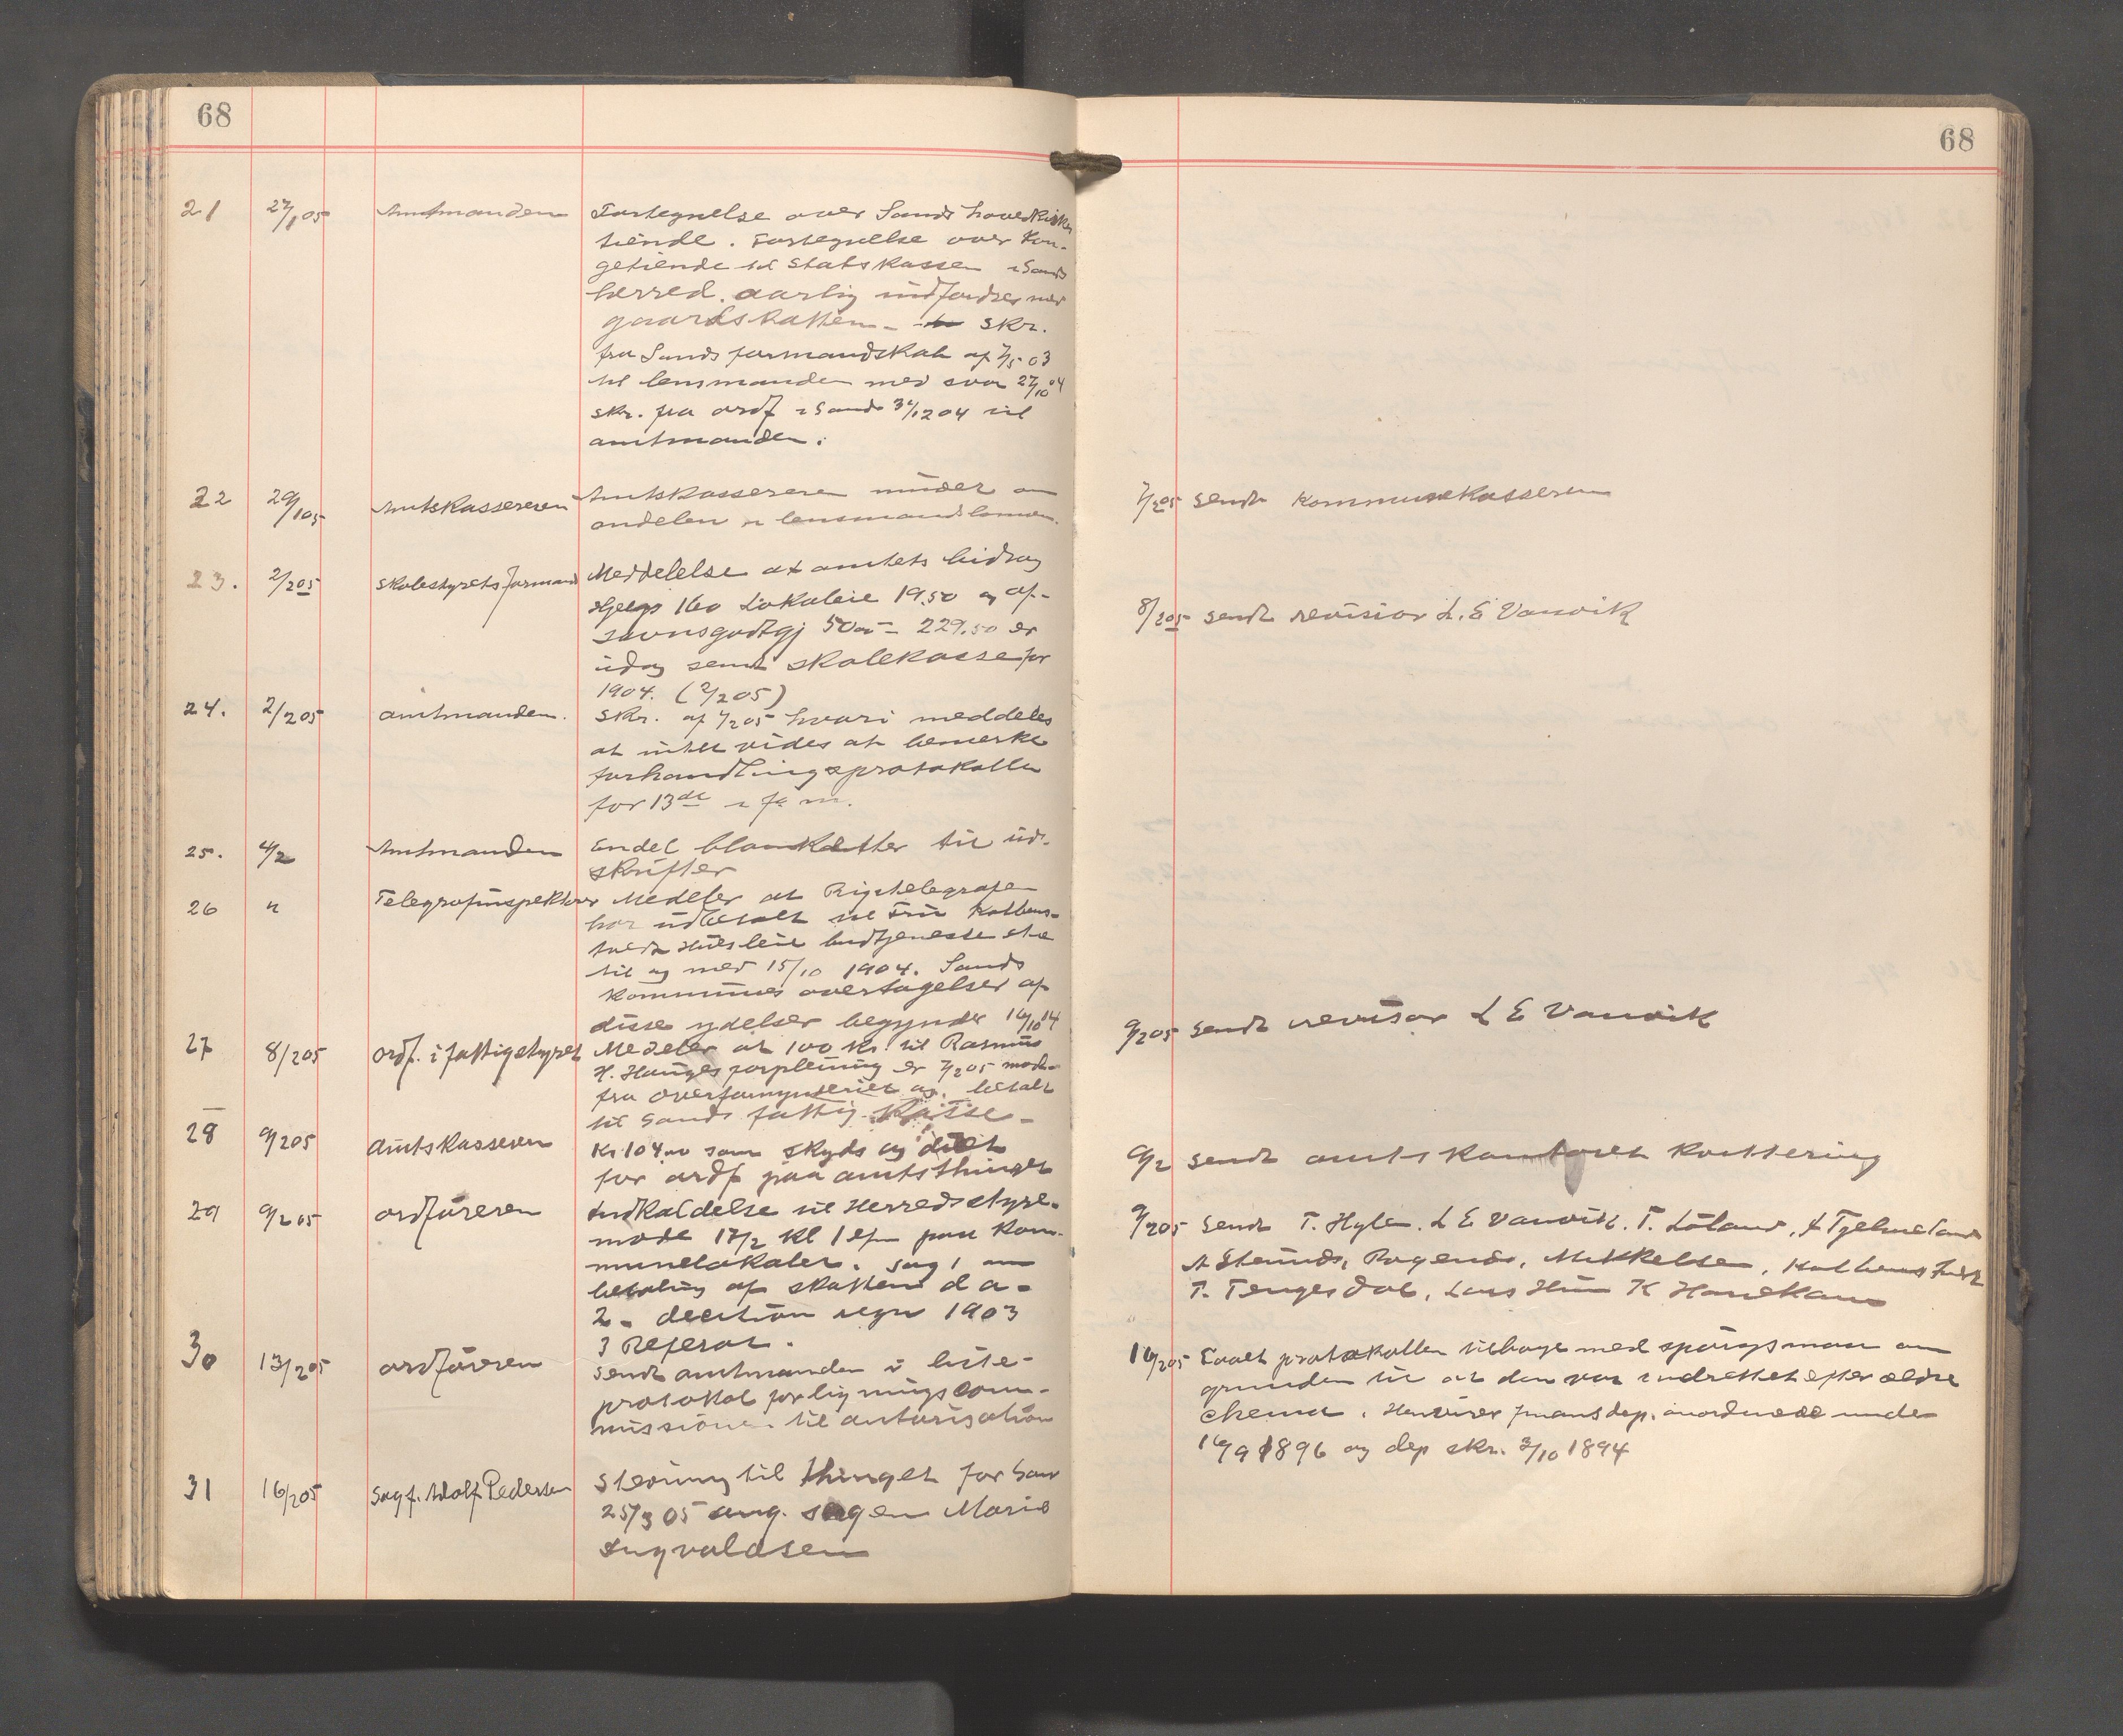 68
21 27/1 05 Amtmanden Fortegnelse over Sands hovedkirke
tiende. Fortegnelse over Kon-
getiende til Statskassen i Sands
herred. aarlig indfordres med
gaardskatten - skr.
fra Sands formandskab af 7/5 03
til lensmanden med svar 27/10 04
skr. fra ordf i Sand 12 04 til
amtmanden.
22 29/1 05 Amtskassereren Amtskassereren minder om
andelen i lensmandslønnen.
23. 2/2 05 Skolestyrets formand Meddelelse at amtets bidrag
160 Lokaleie 19.50 og af-
savnsgodtgj 50 - 229.50 er
idag sendt skolekasse for
1904. (2/2 05)
24. 2/2 05 amtmanden. Skr. af 1/2 05 hvori meddeles
at intet vides at bemerke
forhandlingsprotokollen
for 13de i f. m.
25. 4/2 Amtmanden Endel blanketter til ud-
skrifter
26 " Telegrafinspektør Medeler at Rigstelegrafen
har udbetalt til Fru Kolbens-
tvedt Husleie budtjeneste etc
til og med 15/10 1904. Sands
kommunes overtagelser af
disse ydelser begynder 16/10 14
27 8/2 05 Ordf. i fattigstyret Medeler at 100 kr. til Rasmus
H. Hauges forpleining er 7/2 05 modt.
fra overformynderiet og betalt
til Sands fattig Kasse -
28 9/2 05 Amtskasseren Kr. 104.00 som skyds og diæt
for ordf paa amtsthinget
29 9/2 05 ordføreren Indkaldelse til Herredsstyre-
møde 17/2 kl 1 efm paa kom-
munelokalet. Sag 1 om
betaling af skatten d a -
2 - decision regn 1903
3 Referat.
30 13/2 05 ordføreren Sendt amtmanden i liste-
protokol for ligningscom-
missionen til autorisation
31 16/2 05 Sagf. Adolf Pedersen Stevning til thinget for Sand
25/3 05 ang. sagen Marie
Ingvaldsen
68
7/2 05 sendt Kommunekasseren
8/2 05 sendt revisor L. E Vanvik
9/2 05 Sendt revisor L E Vanvik
9/2 sendt amtskontoret kvittering
9/2 05 Sendt T. Hylen. L E Vanvik. T. Løland, Tjelmeland
A Steinds, Rogends, Mikkelsen, Kolbenstvedt
T. Tengesdal, Lars Hiim K Handeland
16/2 05 protokollen tilbage med spørgsmaal om
grunden til at den var indrettet efter ældre
chema. Henviser finansdep. anordnede under
16/9 1896 og dep skr. 3/10 1894